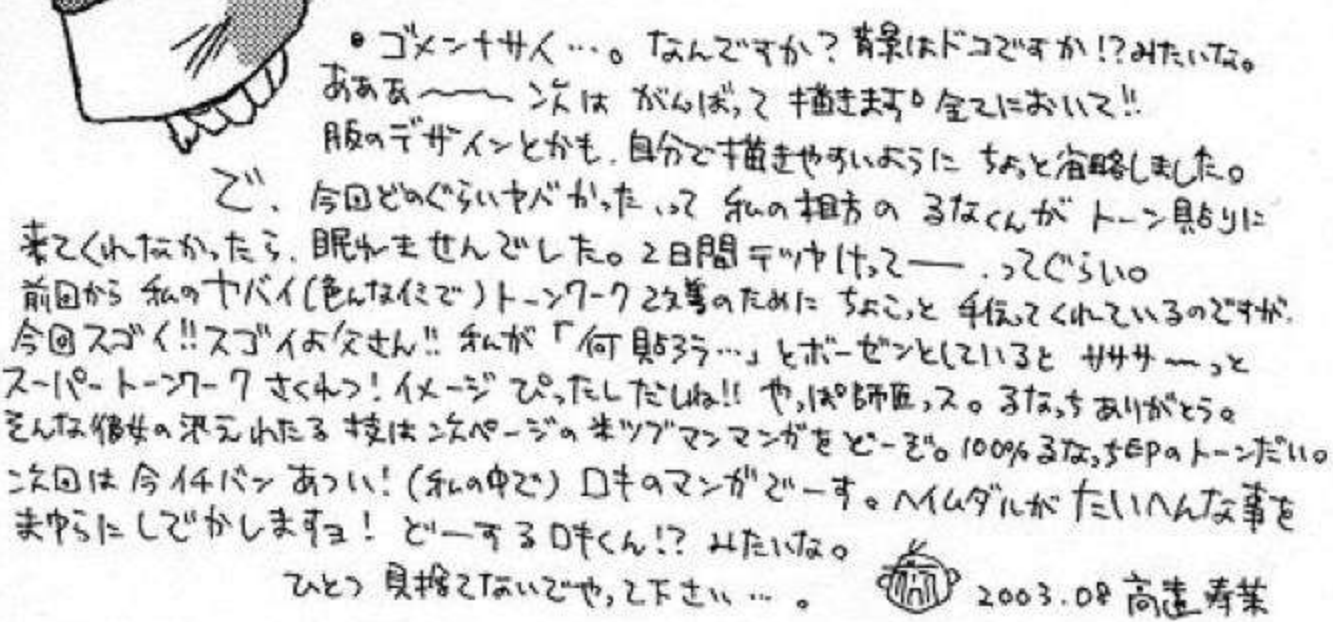 • ゴメンナサイ…。なんですか?背景はドコですか!?みたいな。
あああ〜〜次は がんばって 描きます。全てにおいて!!
服のデザインとかも、自分で描きやすいように ちょっと省略しました。
で、今回どのぐらいヤバかったって 私の相方の るなくんが トーン貼りに
来てくれなかったら、眠れませんでした。2日間 テツヤけってー、ってぐらい。
前回から 私のヤバイ(色んなイミで)トーンワーク改善のために ちょこっと 手伝ってくれているのですが、
今回スゴイ!!スゴイよ父さん!! 私が「何貼ろう…」とボーゼンとしていると ササササ〜っと
スーパートーンワーク さくれつ!イメージ ぴったしだしね!! やっぱ師匠っス。るなっち ありがとう。
そんな彼女の 技は 次ページの 米ツブマンマンガを どーぞ。100%るなっちEPのトーンだい。
次回は 今イチバン あつい!(私の中で) ロキのマンガでーす。ヘイムダルが たいへんな事を
まゆらに しでかしますョ! どーするロキくん!? みたいな。
ひとつ 見捨てないでやって下さい…。
2003.08